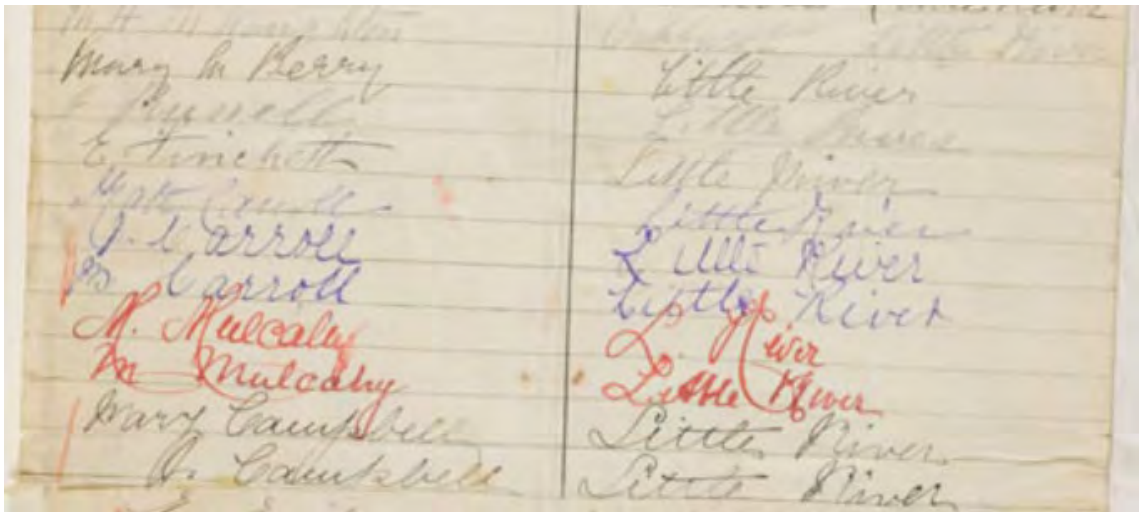 Little River
Mary M Berry Little River
Little River
E Tinchett Little River
Matt Carroll Little River
J. Carroll Little River
M Carroll Little River
M. Mulcahy L. River
M Mulcahy Little River
Mary Campbell Little River
J. Campbell Little River